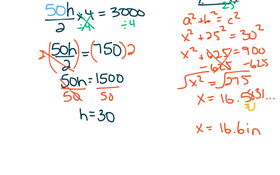 50h/2 · 4 = 3000
÷4 ÷4
2 (50h/2) = (750) 2
50h = 1500
50 50
h = 30
25
a² + b² = c²
x² + 25² = 30²
x² + 625 = 900
- 625 - 625
√x² = √275
x = 16.5831...
x = 16.6 in